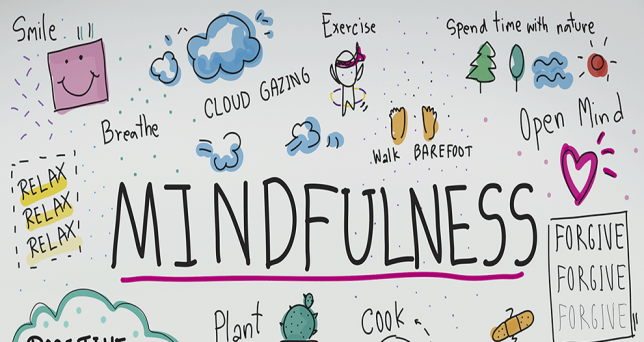 Smile
Exercise
Spend time with nature
CLOUD GAZING
Breathe
Open Mind
Walk BAREFOOT
RELAX
RELAX
RELAX
MINDFULNESS
FORGIVE
FORGIVE
FORGIVE
Plant
COOK
POSITIVE